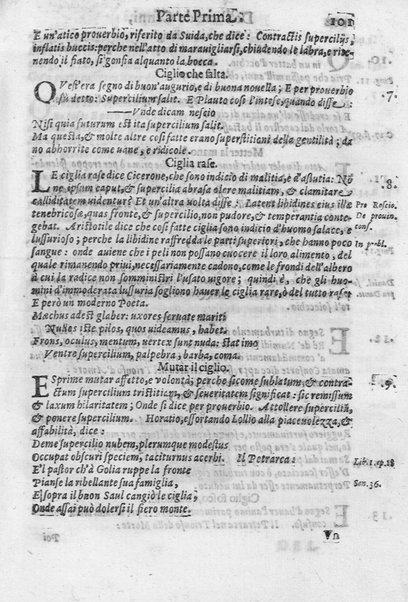 Parte Prima. 101
E un'atico prouerbio, riferito da Suida, che dice: Contractis supercilijs,
inflatis buccis: perche nell'atto di marauigliarsi, chiudendo le labra, e rite-
nendo il fiato, si gonfia alquanto la bocca.
Ciglio che salta.
QVest'era segno di buon'augurio, e di buona nouella; E per prouerbio 7.
es̃i detto: Supercilium salit. E Plauto così l'intese, quando disse:
—Vnde dicam nescio
Nisi quia futurum est ita supercilium salit.
Ma questa, & molte altre cosi fatte erano superstitioni della gentilità; da
no abhorrite come uane, e ridicole.
Ciglia rase.
LE ciglia rase dice Cicerone, che sono indicio di malitia, e d'astutia: Nõ- 8.
ne ipsum caput, & supercilia abrasa olere malitiam, & clamitare
calliditatem uidentur? Et un'altra uolta disse: Latent libidines eius ille Pro Roscio.
tenebricosæ, quas fronte, & supercilio, non pudore, & temperantia conte- De prouin.
gebat. Aristotile dice che cosi fatte ciglia sono indicio d'huomo salace, e conf.
lussurioso; perche la libidine raffredda le parti superiori, che hanno poco In probl.
sangue: onde auiene che i peli non possano cuocere il loro alimento, del
quale rimanendo priui, necessariamente cadono, come le frondi dell'albero
à cui la radice non somministri l'usato uigore; quindi è, chè gli huo-
mini d'immoderata lussuria sogliono hauer le ciglia rare, ò del tutto rase;
E però un moderno Poeta.
Mœchus adest glaber: uxores seruate mariti
Nullos iste pilos, quos uideamus, habet.
Frons, oculus, mentum, uertex sunt nuda: stat imo
Ventre supercilium, palpebra, barba, coma.
Mutar il ciglio.
ESprime mutar affetto, e uolontà; perche sicome sublatum, & contra- 9.
ctum supercilium tristitiam, & seueritatem significat: sic remissum
& laxum hilaritatem; Onde si dice per prouerbio. Attollere supercilia,
& ponere supercilium. Horatio, essortando Lollio alla piaceuolezza, &
affabilità, dice:
Deme supercilio nubem, plerumque modestus
Occupat obscuri speciem, taciturnus acerbi. Il Petrarca: Lib. 1. ep. 18
E'l pastor ch'à Golia ruppe la fronte
Pianse la ribellante sua famiglia, Son. 36.
E sopra il buon Saul cangiò le ciglia;
Onde assai può dolersi il fiero monte.
Vn